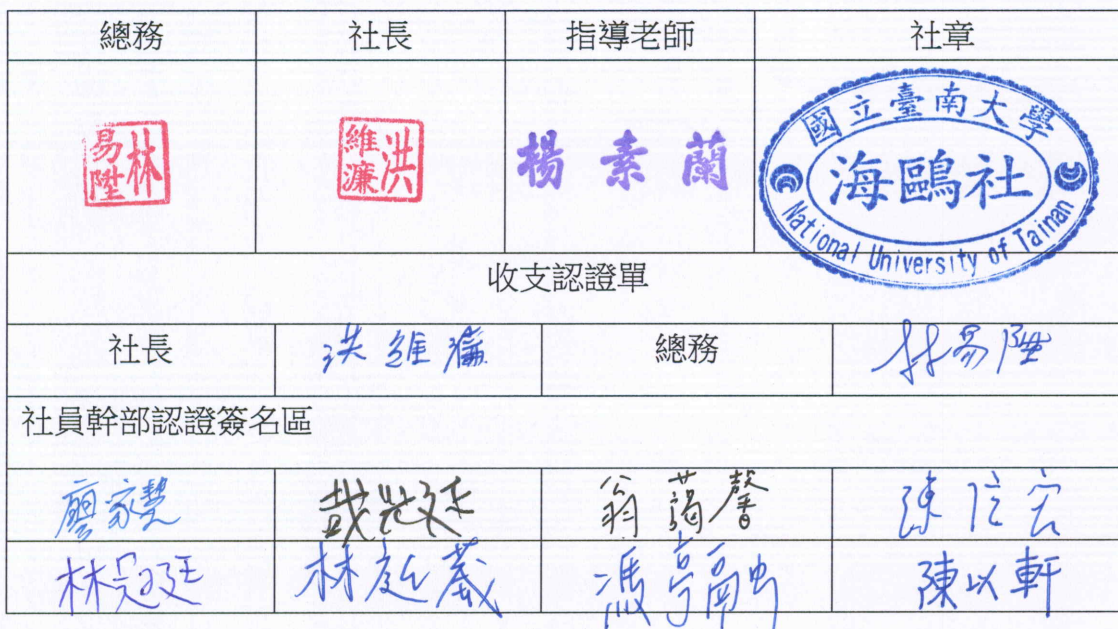 總務 社長 指導老師 社章
林易陞 洪維濂 楊素蘭 國立臺南大學
海鷗社
National University of Tainan
收支認證單
社長 洪維濂 總務 林易陞
社員幹部認證簽名區
廖家慧 翁藹馨 陳信宏
林冠廷 林庭葳 馮亭融 陳以軒